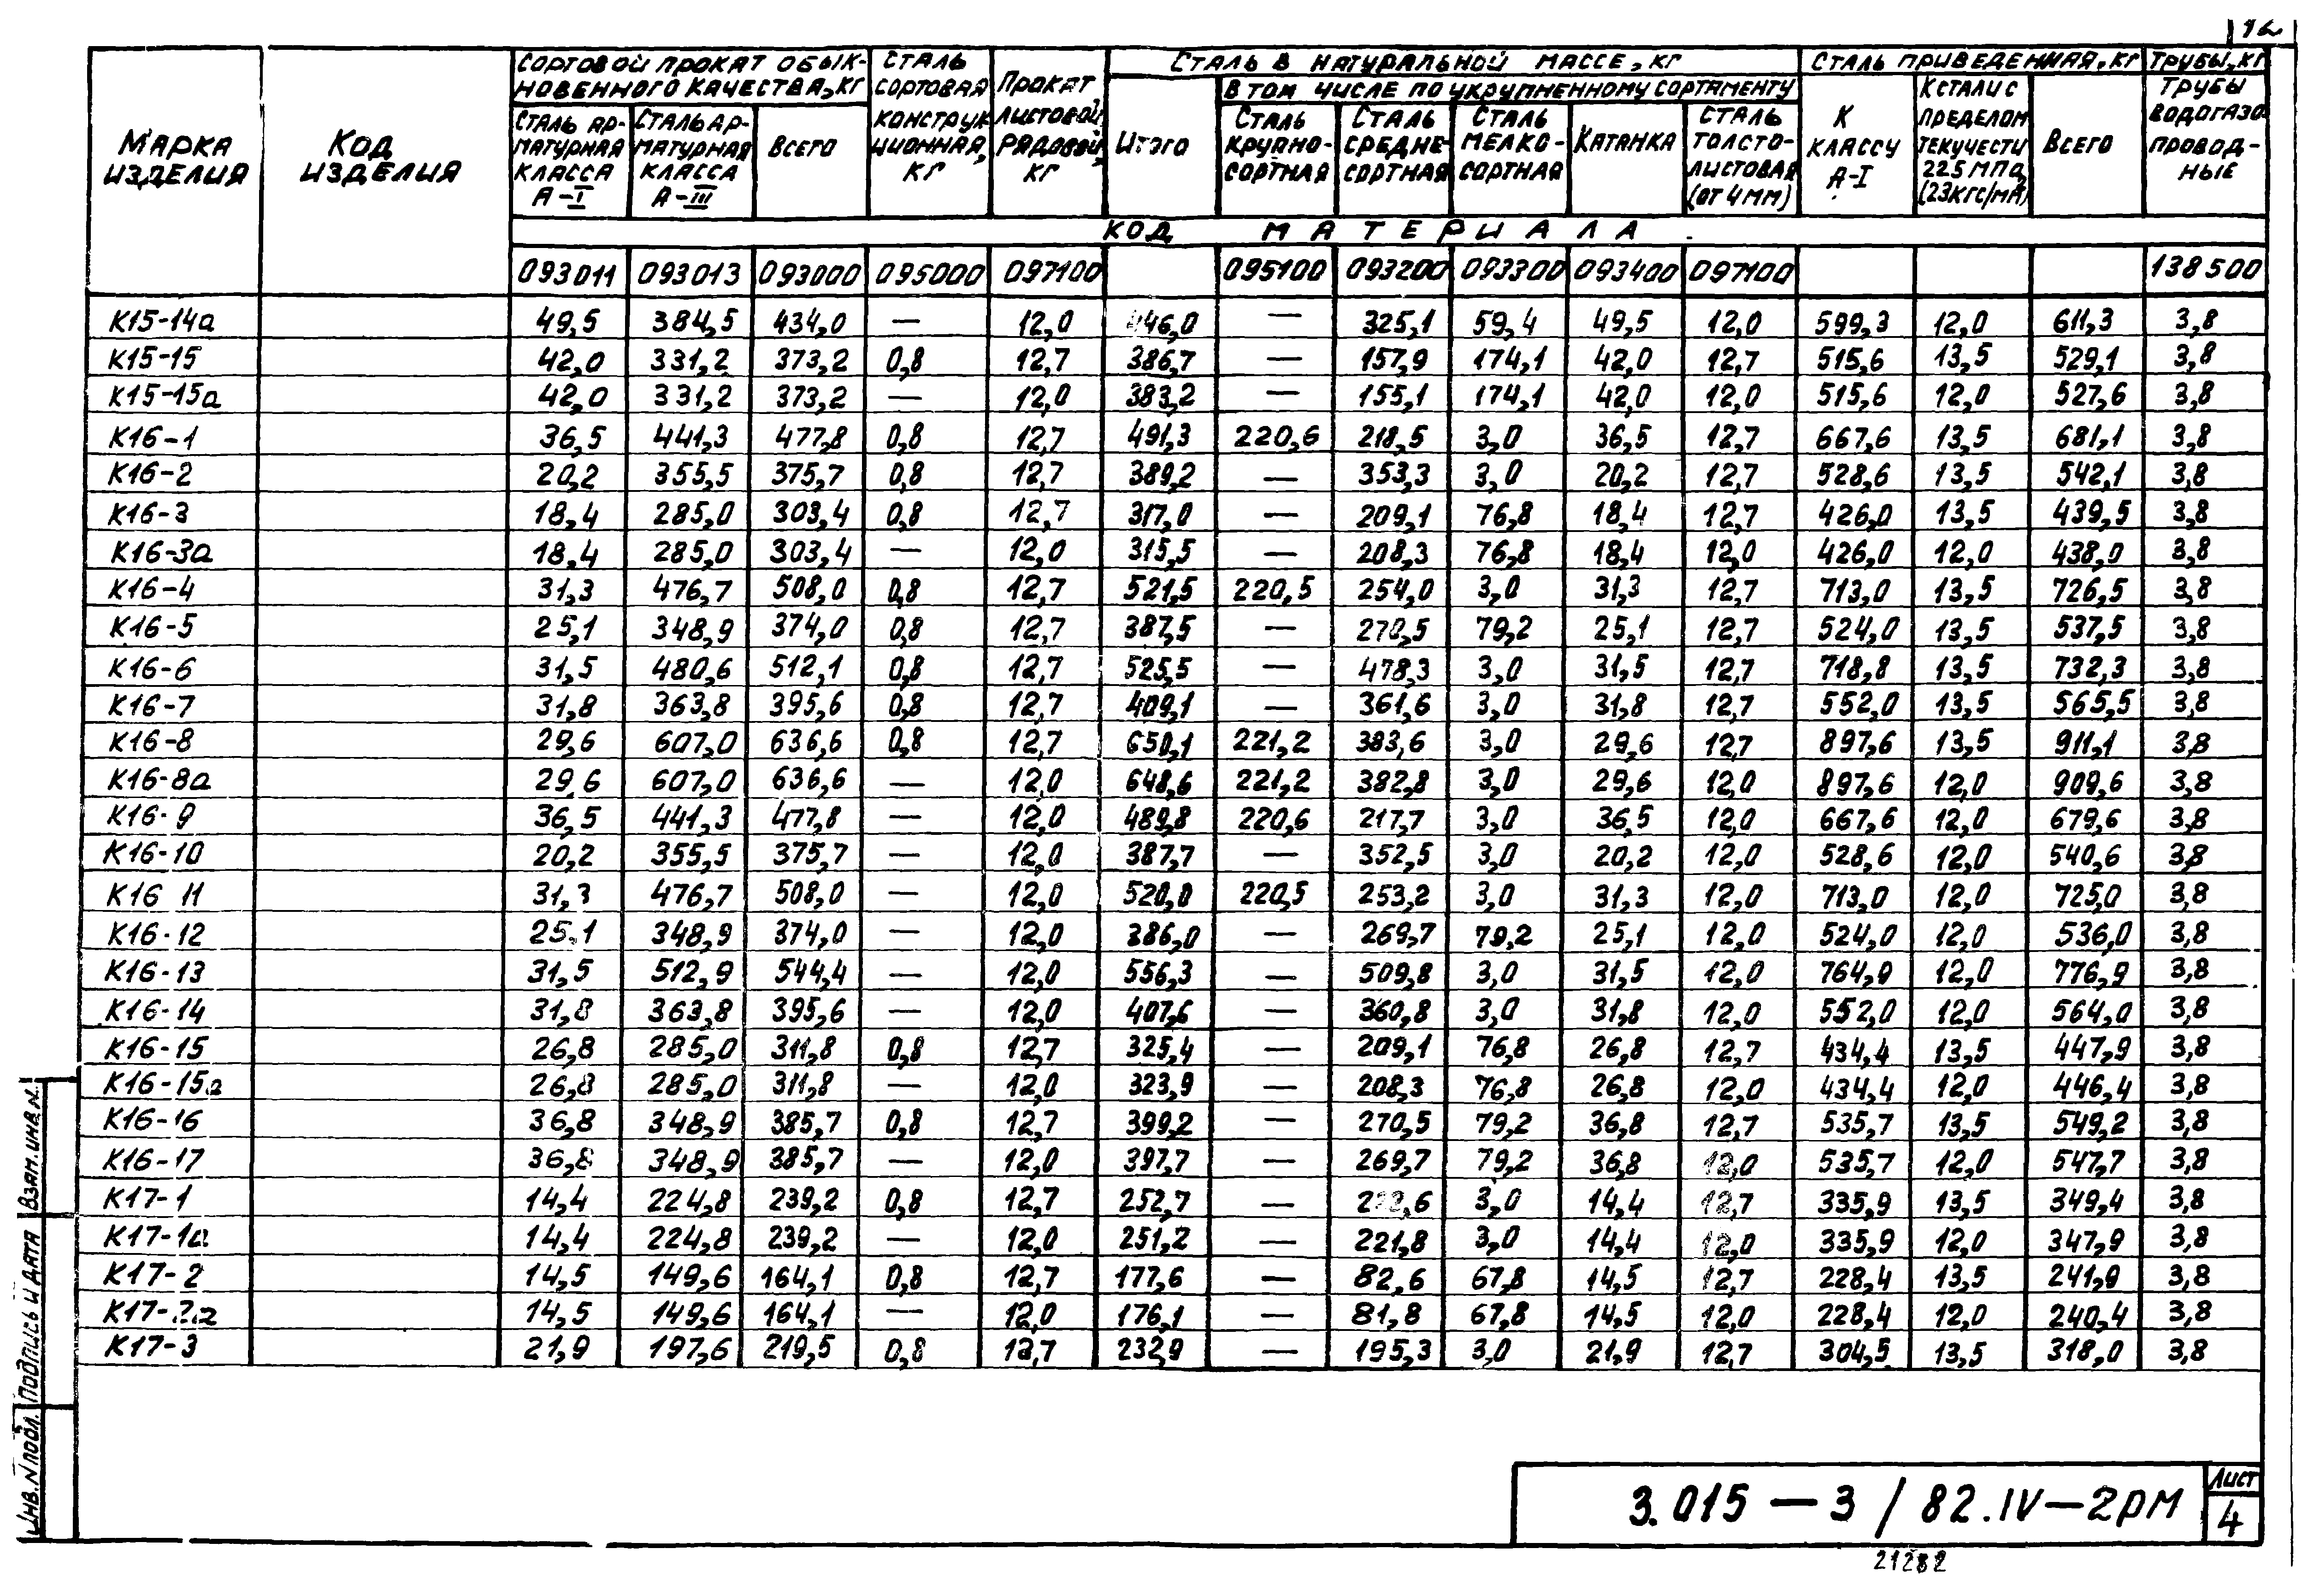 12
МАРКА ИЗДЕЛИЯ | КОД ИЗДЕЛИЯ | СОРТОВОЙ ПРОКАТ ОБЫК-НОВЕННОГО КАЧЕСТВА, КГ | СТАЛЬ СОРТОВАЯ КОНСТРУКЦИОННАЯ, КГ | ПРОКАТ ЛИСТОВОЙ РЯДОВОЙ, КГ | СТАЛЬ В НАТУРАЛЬНОЙ МАССЕ, КГ | СТАЛЬ ПРИВЕДЕННАЯ, КГ | ТРУБЫ, КГ
СТАЛЬ АР-МАТУРНАЯ КЛАССА А-I | СТАЛЬ АР-МАТУРНАЯ КЛАССА А-III | ВСЕГО | ИТОГО | В ТОМ ЧИСЛЕ ПО УКРУПНЕННОМУ СОРТАМЕНТУ | К КЛАССУ А-I | К СТАЛИ С ПРЕДЕЛОМ ТЕКУЧЕСТИ 225 МПа (23КГС/ММ) | ВСЕГО | ТРУБЫ ВОДОГАЗОПРОВОД-НЫЕ
СТАЛЬ КРУПНО-СОРТНАЯ | СТАЛЬ СРЕДНЕ-СОРТНАЯ | СТАЛЬ МЕЛКО-СОРТНАЯ | КАТАНКА | СТАЛЬ ТОЛСТО-ЛИСТОВАЯ (ОТ 4 ММ)
КОД МАТЕРИАЛА
093011 093013 093000 095000 097100 095100 093200 093300 093400 097100 138500
К15-14а 49,5 384,5 434,0 — 12,0 446,0 — 325,1 59,4 49,5 12,0 599,3 12,0 611,3 3,8
К15-15 42,0 331,2 373,2 0,8 12,7 386,7 — 157,9 174,1 42,0 12,7 515,6 13,5 529,1 3,8
К15-15а 42,0 331,2 373,2 — 12,0 383,2 — 155,1 174,1 42,0 12,0 515,6 12,0 527,6 3,8
К16-1 36,5 441,3 477,8 0,8 12,7 491,3 220,6 218,5 3,0 36,5 12,7 667,6 13,5 681,1 3,8
К16-2 20,2 355,5 375,7 0,8 12,7 389,2 — 353,3 3,0 20,2 12,7 528,6 13,5 542,1 3,8
К16-3 18,4 285,0 303,4 0,8 12,7 317,0 — 209,1 76,8 18,4 12,7 426,0 13,5 439,5 3,8
К16-3а 18,4 285,0 303,4 — 12,0 315,5 — 208,3 76,8 18,4 12,0 426,0 12,0 438,0 3,8
К16-4 31,3 476,7 508,0 0,8 12,7 521,5 220,5 254,0 3,0 31,3 12,7 713,0 13,5 726,5 3,8
К16-5 25,1 348,9 374,0 0,8 12,7 387,5 — 270,5 79,2 25,1 12,7 524,0 13,5 537,5 3,8
К16-6 31,5 480,6 512,1 0,8 12,7 525,5 — 478,3 3,0 31,5 12,7 718,8 13,5 732,3 3,8
К16-7 31,8 363,8 395,6 0,8 12,7 409,1 — 361,6 3,0 31,8 12,7 552,0 13,5 565,5 3,8
К16-8 29,6 607,0 636,6 0,8 12,7 650,1 221,2 383,6 3,0 29,6 12,7 897,6 13,5 911,1 3,8
К16-8а 29,6 607,0 636,6 — 12,0 648,6 221,2 382,8 3,0 29,6 12,0 897,6 12,0 909,6 3,8
К16-9 36,5 441,3 477,8 — 12,0 489,8 220,6 217,7 3,0 36,5 12,0 667,6 12,0 679,6 3,8
К16-10 20,2 355,5 375,7 — 12,0 387,7 — 352,5 3,0 20,2 12,0 528,6 12,0 540,6 3,8
К16 11 31,3 476,7 508,0 — 12,0 520,0 220,5 253,2 3,0 31,3 12,0 713,0 12,0 725,0 3,8
К16-12 25,1 348,9 374,0 — 12,0 386,0 — 269,7 79,2 25,1 12,0 524,0 12,0 536,0 3,8
К16-13 31,5 512,9 544,4 — 12,0 556,3 — 509,8 3,0 31,5 12,0 764,9 12,0 776,9 3,8
К16-14 31,8 363,8 395,6 — 12,0 407,6 — 360,8 3,0 31,8 12,0 552,0 12,0 564,0 3,8
К16-15 26,8 285,0 311,8 0,8 12,7 325,4 — 209,1 76,8 26,8 12,7 434,4 13,5 447,9 3,8
К16-15а 26,8 285,0 311,8 — 12,0 323,9 — 208,3 76,8 26,8 12,0 434,4 12,0 446,4 3,8
К16-16 36,8 348,9 385,7 0,8 12,7 399,2 — 270,5 79,2 36,8 12,7 535,7 13,5 549,2 3,8
К16-17 36,8 348,9 385,7 — 12,0 397,7 — 269,7 79,2 36,8 12,0 535,7 12,0 547,7 3,8
К17-1 14,4 224,8 239,2 0,8 12,7 252,7 — 222,6 3,0 14,4 12,7 335,9 13,5 349,4 3,8
К17-1а 14,4 224,8 239,2 — 12,0 251,2 — 221,8 3,0 14,4 12,0 335,9 12,0 347,9 3,8
К17-2 14,5 149,6 164,1 0,8 12,7 177,6 — 82,6 67,8 14,5 12,7 228,4 13,5 241,9 3,8
К17-2а 14,5 149,6 164,1 — 12,0 176,1 — 81,8 67,8 14,5 12,0 228,4 12,0 240,4 3,8
К17-3 21,9 197,6 219,5 0,8 12,7 232,9 — 195,3 3,0 21,9 12,7 304,5 13,5 318,0 3,8
ИНВ. N ПОДЛ. ПОДПИСЬ И ДАТА ВЗАМ. ИНВ. N
3.015 — 3 / 82. IV — 2РМ
ЛИСТ
4
21282